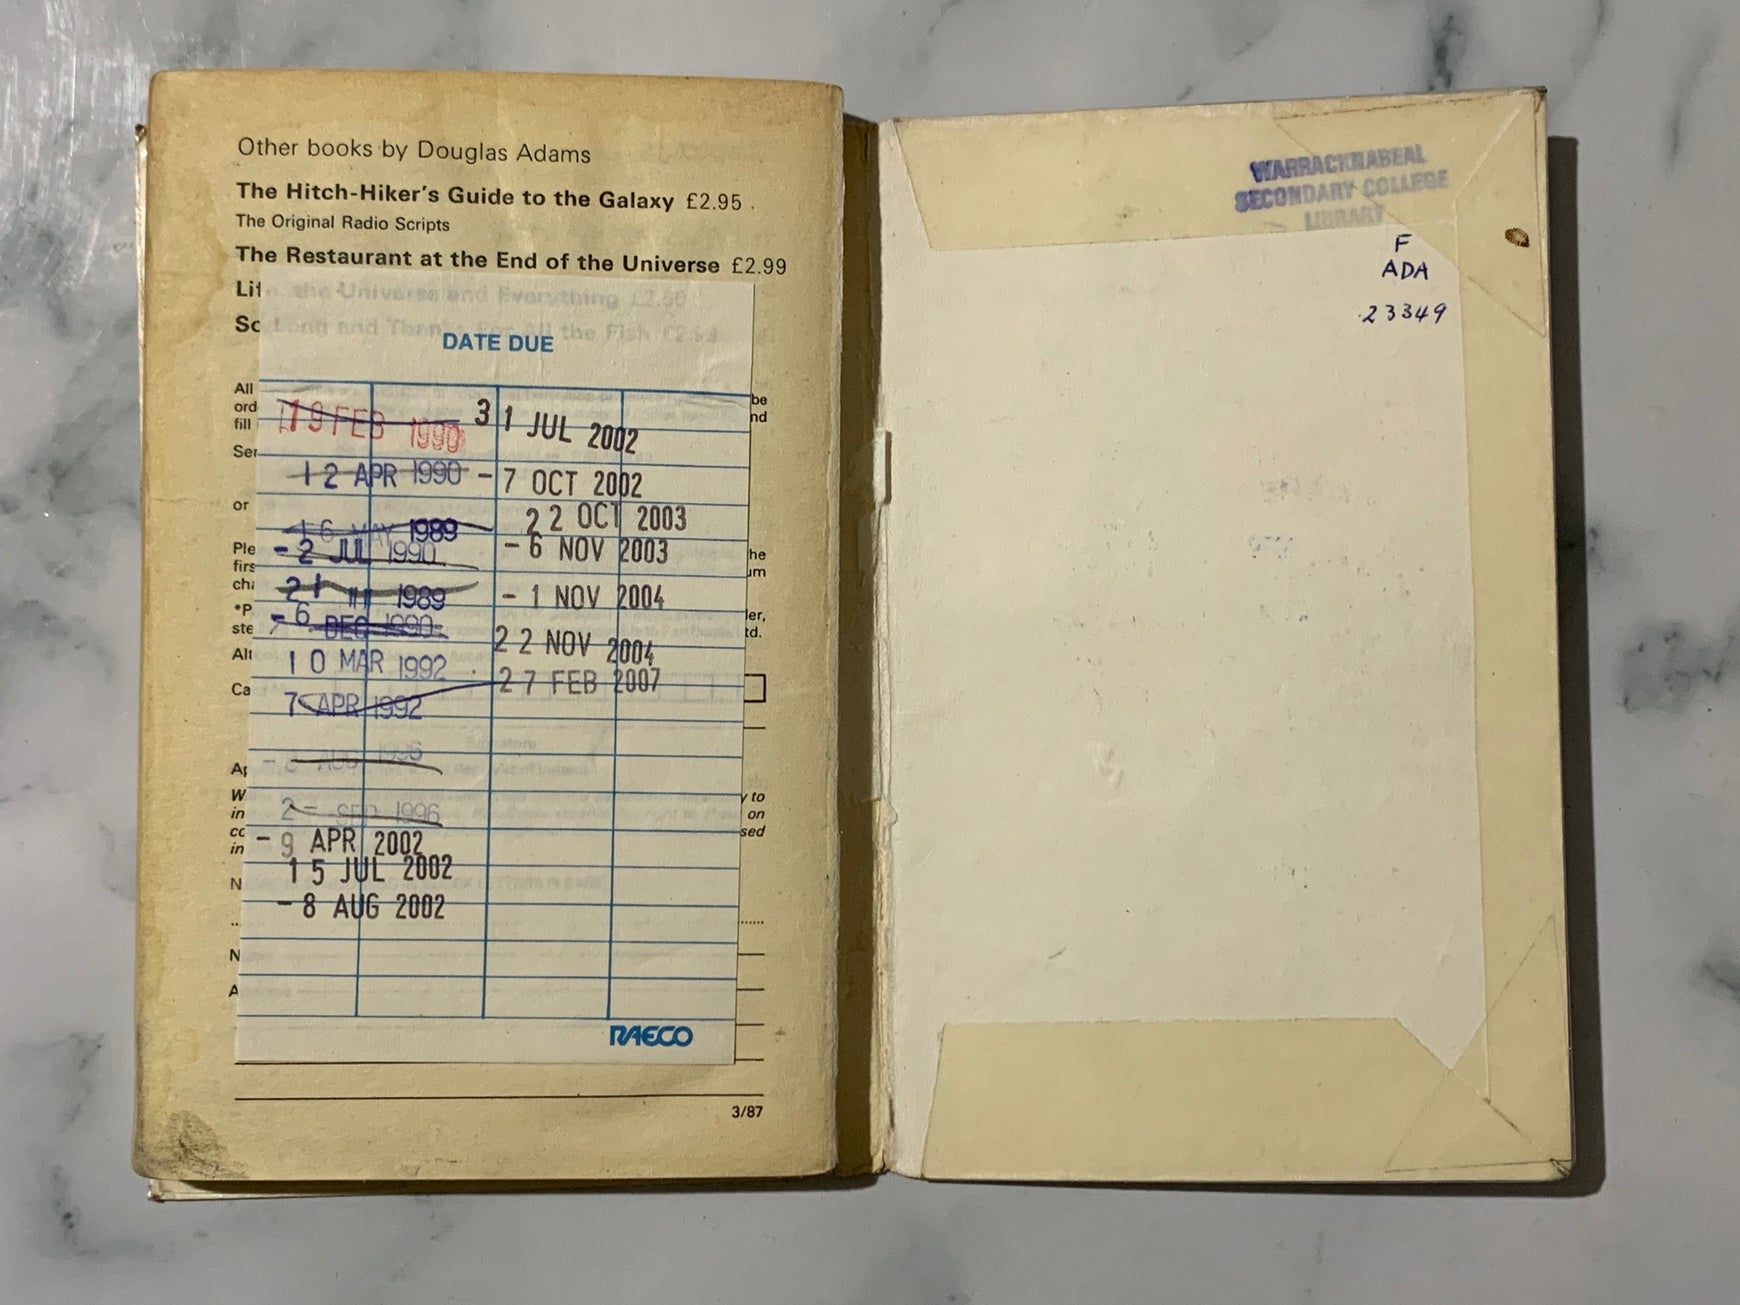 Other books by Douglas Adams
The Hitch-Hiker's Guide to the Galaxy £2.95
The Original Radio Scripts
The Restaurant at the End of the Universe £2.99
Lif the Universe and Everything
So Long and Thanks For All the Fish
DATE DUE
All be
ord nd
fill
Ser
or
Ple he
firs um
cha
*P ler,
ste td.
Alt
Ca
Ap
W y to
in on
cc sed
in
N
N
A
19 FEB 1990
12 APR 1990
16 MAY 1989
- 2 JUL 1990
21 1989
- 6 DEC 1990
10 MAR 1992
7 APR 1992
AUG 1996
2 - SEP 1996
- 9 APR 2002
15 JUL 2002
- 8 AUG 2002
31 JUL 2002
- 7 OCT 2002
22 OCT 2003
- 6 NOV 2003
- 1 NOV 2004
22 NOV 2004
27 FEB 2007
RAECO
3/87
WARRACKNABEAL
SECONDARY COLLEGE
LIBRARY
F
ADA
23349